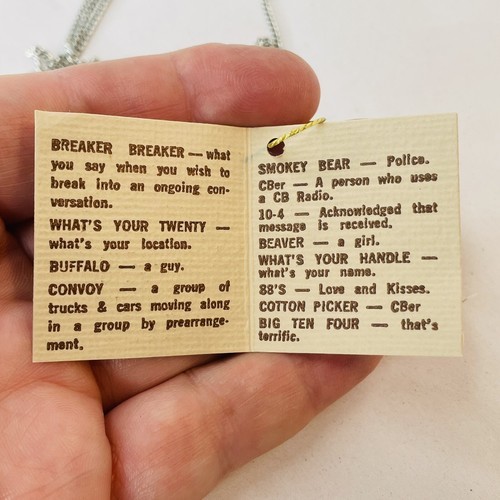 BREAKER BREAKER — what
you say when you wish to
break into an ongoing con-
versation.
WHAT'S YOUR TWENTY —
what's your location.
BUFFALO — a guy.
CONVOY — a group of
trucks & cars moving along
in a group by prearrange-
ment.
SMOKEY BEAR — Police.
CBer — A person who uses
a CB Radio.
10-4 — Acknowledged that
message is received.
BEAVER — a girl.
WHAT'S YOUR HANDLE —
what's your name.
88'S — Love and Kisses.
COTTON PICKER — CBer
BIG TEN FOUR — that's
terrific.